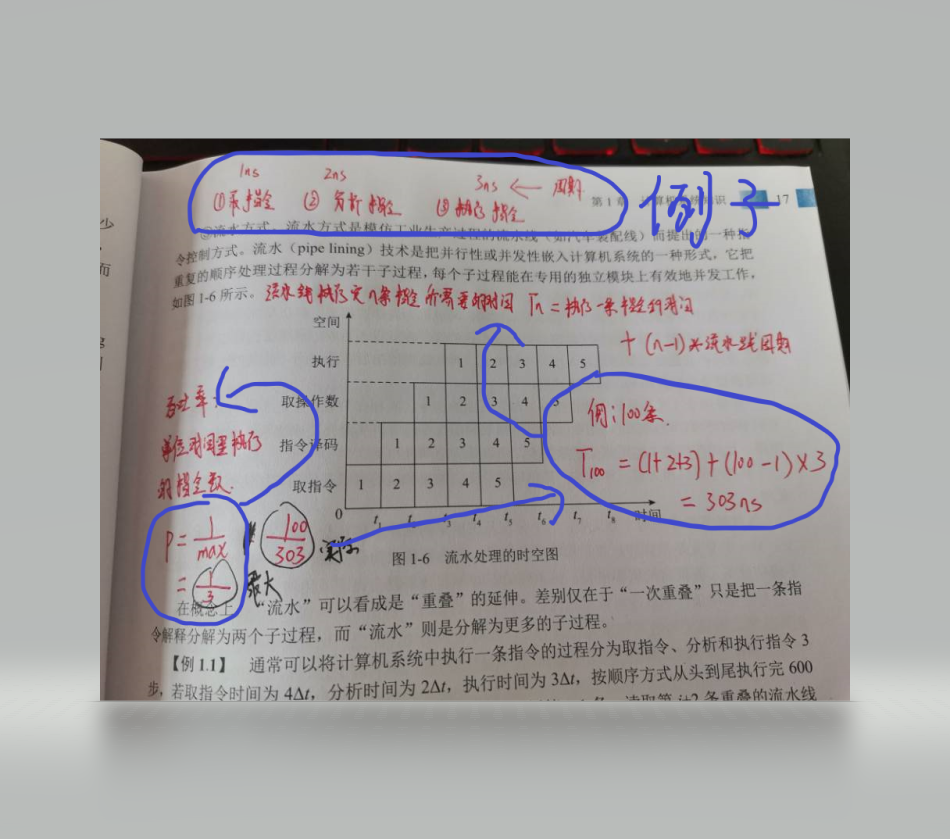 1ns 2ns 3ns ← 周期
①取指令 ② 分析指令 ③ 执行指令
例子
第1章 计算机系统知识 17
③流水方式。流水方式是模仿工业生产过程的流水线(如汽车装配线)而提出的一种指
令控制方式。流水(pipe lining)技术是把并行性或并发性嵌入计算机系统的一种形式,它把
重复的顺序处理过程分解为若干子过程,每个子过程能在专用的独立模块上有效地并发工作,
如图1-6所示。
流水线执行完n条指令所需要的时间 Tn = 执行一条指令的时间
+ (n-1)*流水线周期
空间
执行 1 2 3 4 5
取操作数 1 2 3 4 5
指令译码 1 2 3 4 5
取指令 1 2 3 4 5
0 t1 t2 t3 t4 t5 t6 t7 t8 时间
吞吐率:
单位时间里执行
的指令数.
例:100条.
T100 = (1+2+3)+(100-1)×3
= 303ns
P = 1/max
= 1/3 最大
100/303 实际
图1-6 流水处理的时空图
在概念上,“流水”可以看成是“重叠”的延伸。差别仅在于“一次重叠”只是把一条指
令解释分解为两个子过程,而“流水”则是分解为更多的子过程。
【例1.1】 通常可以将计算机系统中执行一条指令的过程分为取指令、分析和执行指令3
步,若取指令时间为4Δt,分析时间为2Δt,执行时间为3Δt,按顺序方式从头到尾执行完600
条重叠的流水线